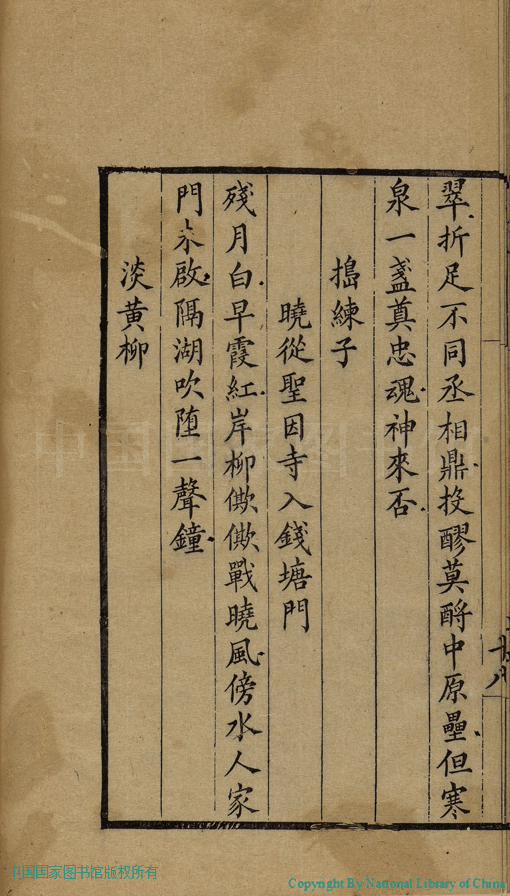 翠折足不同丞相鼎投醪莫酹中原壘但寒
泉一盞奠忠魂神來否
搗練子
曉從聖因寺入錢塘門
殘月白早霞紅岸柳僛僛戰曉風傍水人家
門未啟隔湖吹堕一聲鐘
淡黄柳
十八
中国国家图书馆
中国国家图书馆版权所有
Copyright By National Library of China